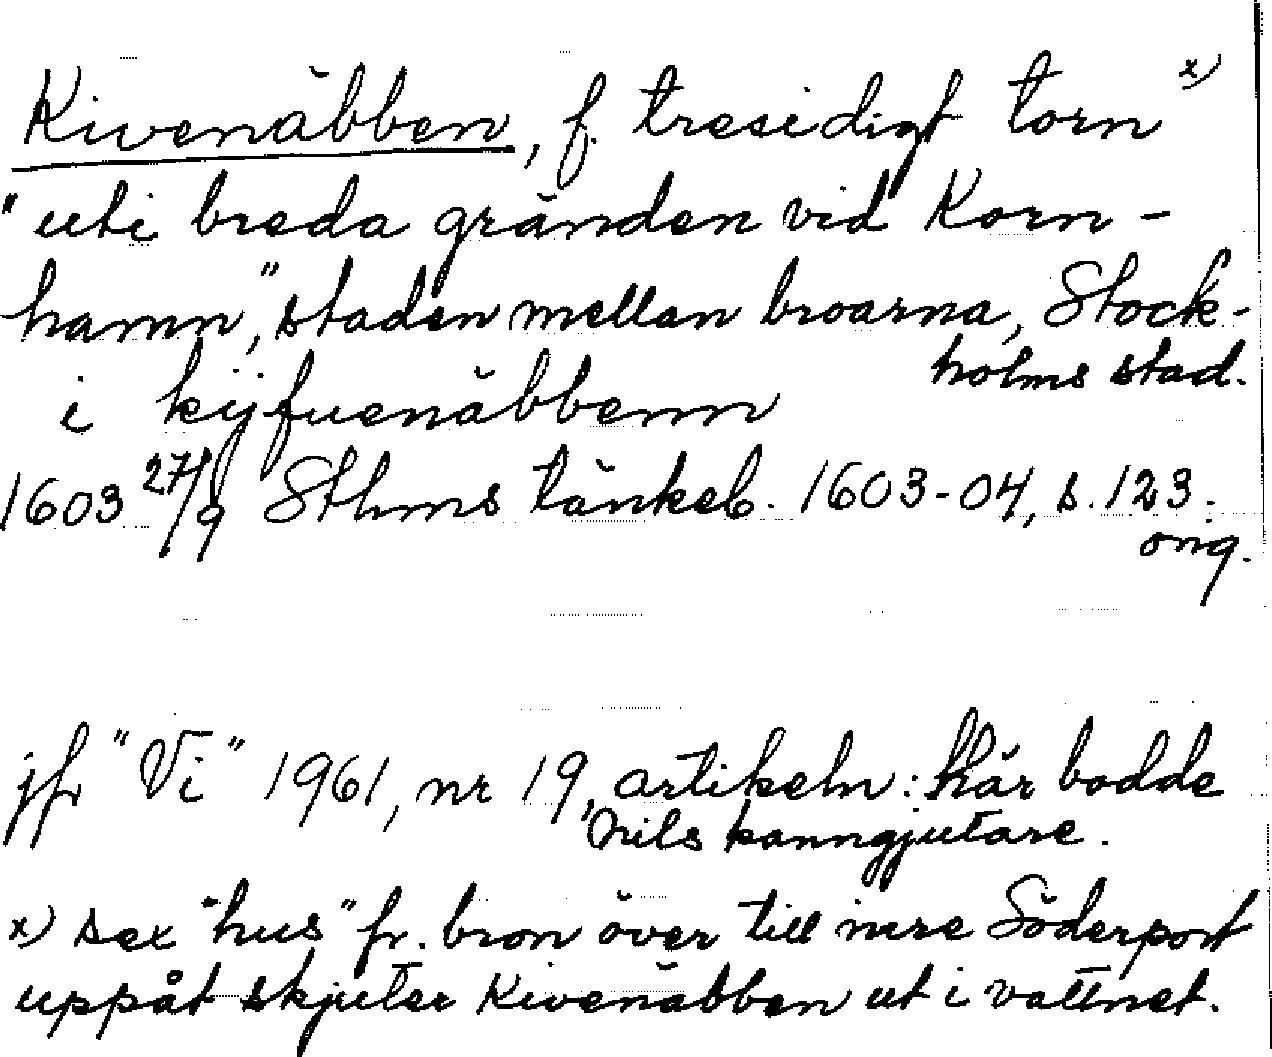 Kivenäbben, f. tresidigt torn x)
"uti breda gränden vid Korn-
hamn", staden mellan broarna, Stock-
holms stad.
i kÿfuenäbbenn
1603 27/9 Sthms tänkeb. 1603-04, s. 123.
orig.
jfr "Vi" 1961, nr 19, artikeln: här bodde
Nils kanngjutare.
x) sex "hus" fr. bron över till inre Söderport
uppåt skjuter Kivenäbben ut i vattnet.